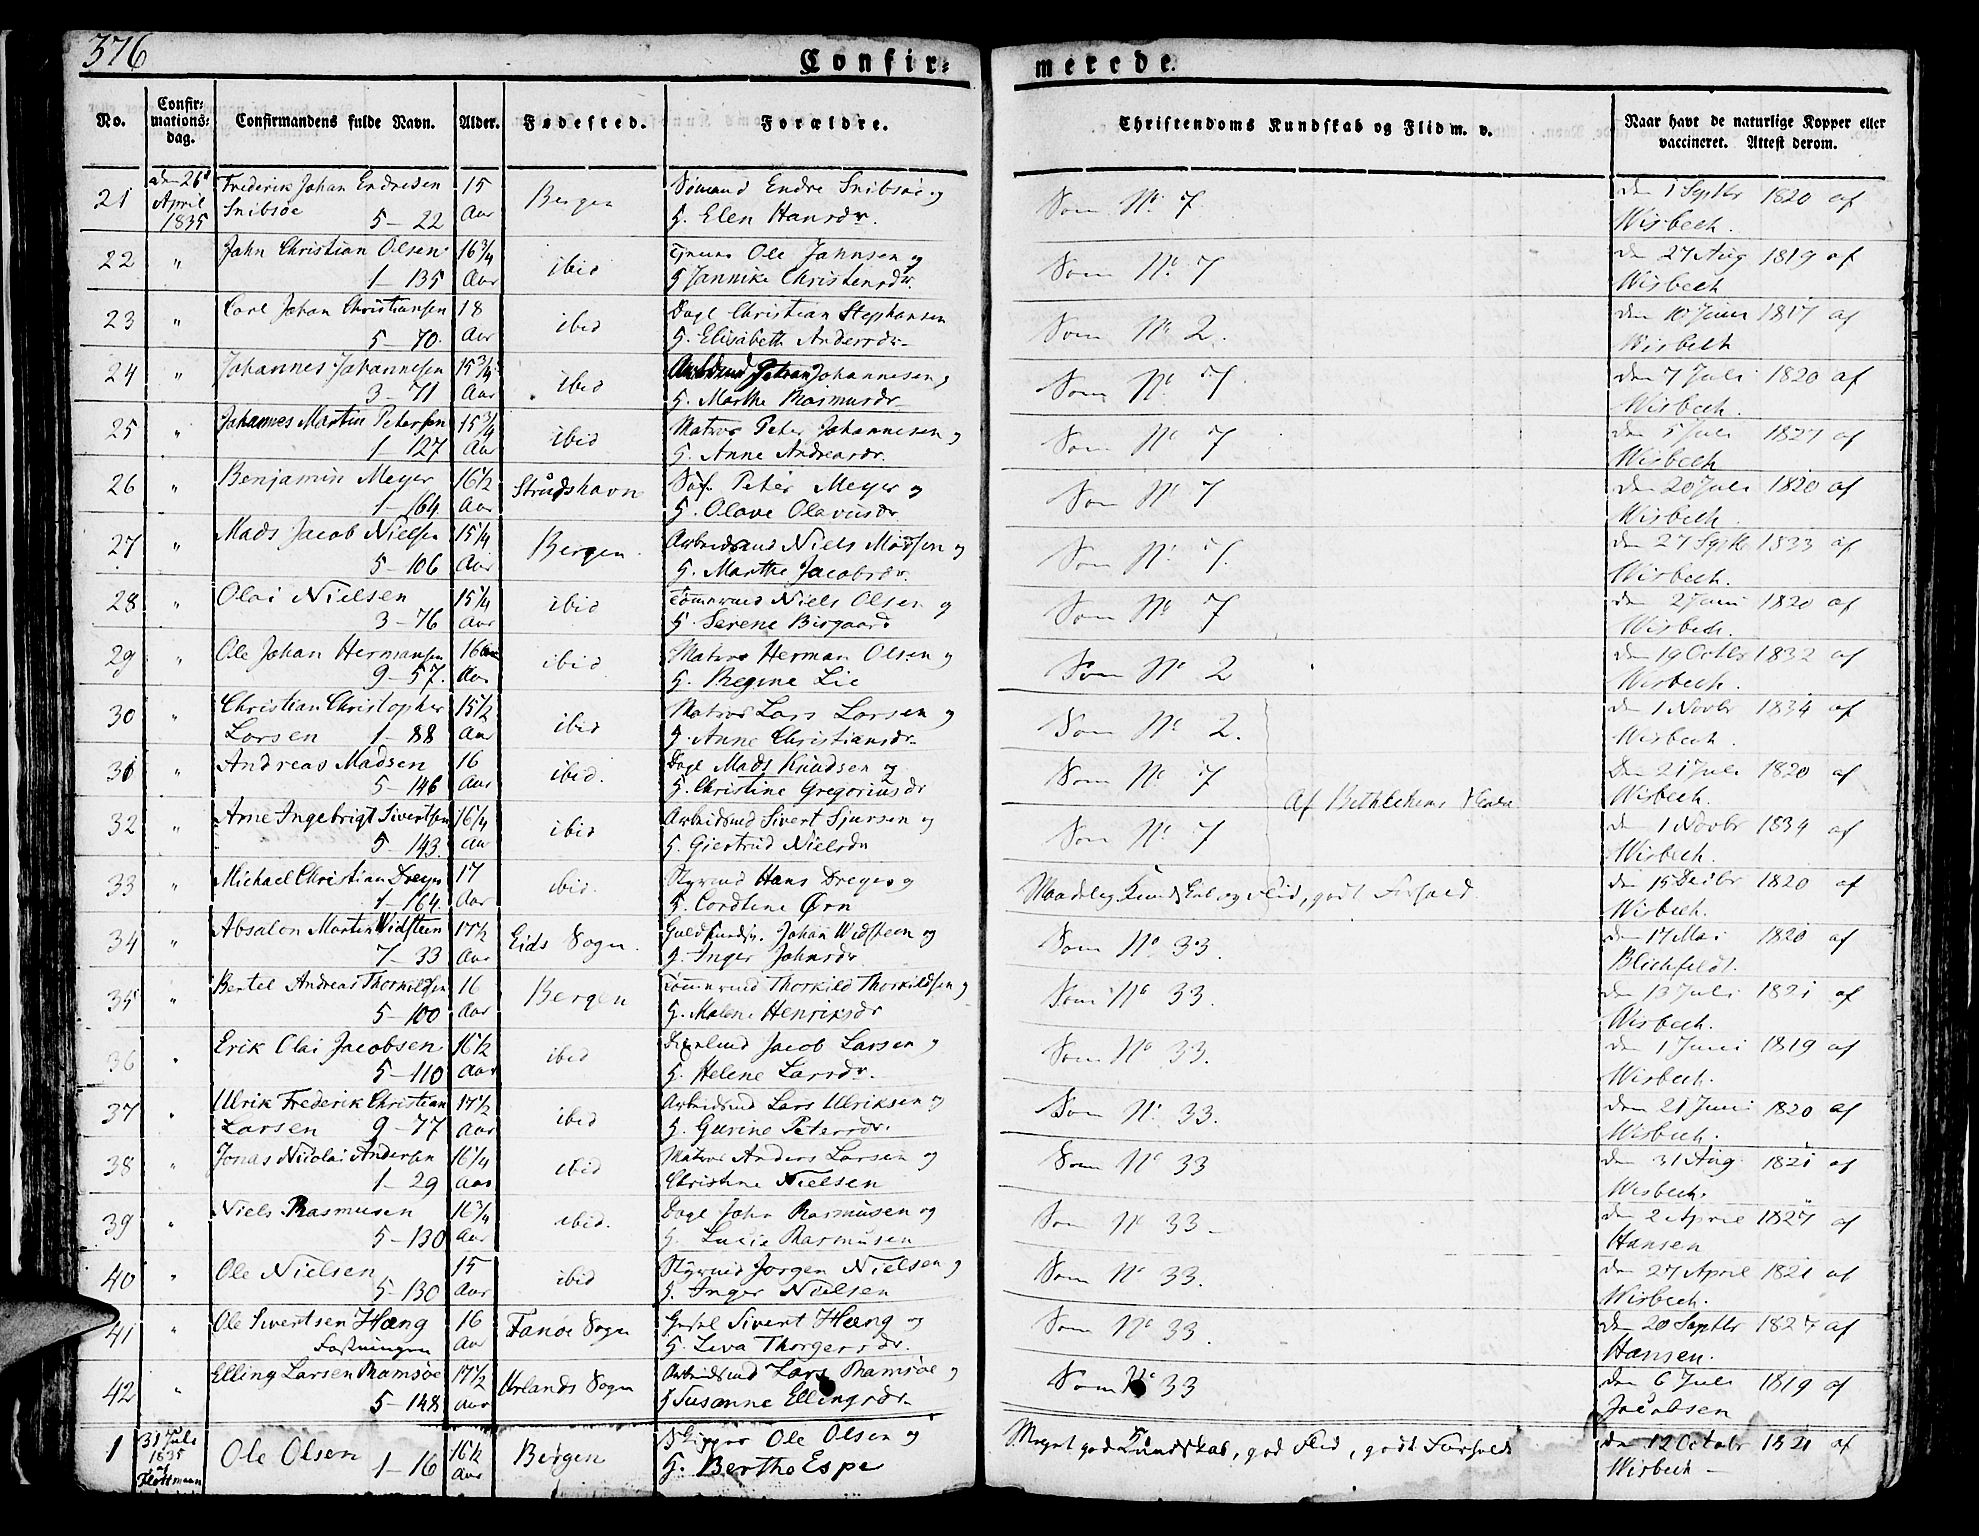 376
Confir=
merede.
No.
Confir=
mations=
dag.
Confirmandens fulde Navn.
Alder.
Fødested.
Forældre.
Christendoms Kundskab og Flid m. v.
Naar havt de naturlige Kopper eller
vaccineret. Attest derom.
21 den 26d Frederik Johan Endresen 15 Bergen Sømand Endre Snibsøe og Som No. 7 den 1 Septbr 1820 af
April 1835 Snibsøe 5–22 Aar G. Elen Hansdr. Wisbech.
22 " Jahn Christian Olsen 16¾ ibid Ole Jahnsen og Som No. 7 den 27 Aug 1819 af
1–135 Aar G Jannike Christensdr. Wisbech
23 " Carl Johan Christiansen 18 ibid Dagl Christian Stephansen Som No. 2. den 10 Juni 1817 af
5–70. Aar G. Elisabeth Andersdr. Wisbech
24 " Johannes Johannesen 15¾ ibid Johannesen Som No. 7. den 7 Juli 1820 af
3–71 Aar G. Marthe Rasmusdr. Wisbech.
25 " Johannes Martin Petersen 15¾ ibid Matros Peter Johannesen og Som No. 7 den 5 Juli 1827 af
1–127 Aar G. Anne Andreasdr. Wisbech
26 " Benjamin Meyer 16½ Strudshavn Søf. Peter Meyer og Som No. 7 den 20 Juli 1820 af
1–164 Aar G. Olave Olavusdr. Wisbech.
27 " Mads Jacob Nielsen 15¼ Bergen. Arbeidsmd Niels Madsen og Som No. 7. den 27 Septbr 1833 af
5–106 Aar G. Marthe Jacobsdr. Wisbech.
28 " Olai Nielsen 15¼ ibid Tømmrmd Niels Olsen og Som No. 7 den 2 Juni 1820 af
3–76 Aar G. Serene Birgaard Wisbech.
29 " Ole Johan Hermansen 16 ibid Matros Herman Olsen og Som No. 2 den 19 Octbr 1832 af
9–57. Aar G. Regine Lie Wisbech.
30 " Christian Christopher 15½ ibid Matros Lars Larsen og Som No. 2. den 1 Novbr 1834 af
Larsen 1–88 Aar G. Anne Christiansdr. Wisbech.
31 " Andreas Madsen 16 ibid. Dagl Mads Knudsen og Som No. 7 Den 21 Juli 1820 af
5–146 Aar G. Christine Gregoriusdr Af Bethlehems Wisbech.
32 " Arne Ingebrigt Sivertsen 16¼ ibid Arbeidsmd Sivert Sjursen og Som No. 7 den 1 Novbr 1834 af
5–143. Aar G. Giertrud Nielsdr Wisbech.
33 " Michael Christian Dreyer 17 ibid. Styrmd Hans Dreyer og Maadelig Kundskab og Flid, godt Forhold. den 15 Decbr 1820 af
1–164. Aar G. Cordtine Ørn Wisbech.
34 " Absalon Martin Widsteen 17½ Eids Sogn. Johan Widsteen og Som No. 33. den 17 Mai 1820 af
7–33 Aar G. Inger Johnsdr. Blichfeldt.
35 " Bertel Andreas Thorkildsen 16 Bergen Tømmrmd Thorkild Thorkildsen og Som No. 33. den 13 Juli 1821 af
5–100 Aar G. Malene Henriksdr Wisbech.
36 " Erik Olai Jacobsen 16½ ibid Jacob Larsen og Som No. 33. den 1 Juni 1819 af
5–110 Aar G. Helene Larsdr. Wisbech.
37 " Ulrik Frederik Christian 17½ ibid Arbeidsmd Lars Ulriksen og Som No. 33. den 21 Juni 1820 af
Larsen 9–77 Aar G. Gurine Petersdr. Wisbech.
38 " Jonas Nicolai Andersen 16¼ ibid Matros Anders Larsen og Som No. 33 den 31 Aug 1821 af
1–29 Aar Christine Nielsen Wisbech.
39 " Niels Rasmusen 16¾ ibid. Dagl John Rasmusen og Som No. 33 den 2 April 1827 af
5–130 Aar G. Lucie Rasmusen Hansen
40 " Ole Nielsen 15 ibid Styrmd Jørgen Nielsen og Som No. 33. den 27 April 1821 af
5–130 Aar G. Inger Nielsen Wisbech.
41 " Ole Sivertsen Hæng 16 Fanøe Sogn Sivert Hæng og Som No. 33. den 20 Septbr 1827 af
Fastningen Aar G. Liva Thorgersdr. Hansen.
42 " Elling Larsen Ramsøe 17½ Urlands Sogn Arbeidsmd Lars Ramsøe og Som No. 33 den 6 Juli 1819 af
5–148 Aar G Susanne Ellingsdr. Jacobsen
1 31 Juli 1835 Ole Olsen 16½ Bergen Skipper Ole Olsen og Meget god Kundskab, god Flid, godt Forhold den 12 Octobr 1821 af
af Flottmann 1–16 Aar G. Berthe Espe Wisbech